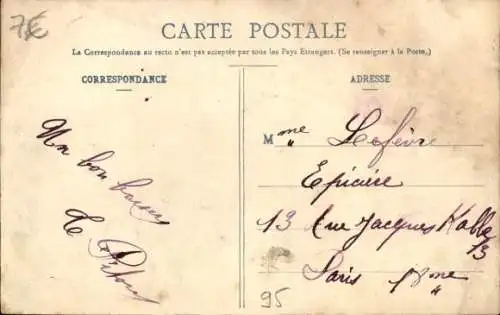 7€
CARTE POSTALE
La Correspondance au recto n'est pas acceptée par tous les Pays Etrangers. (Se renseigner à la Poste.)
CORRESPONDANCE
ADRESSE
Un bon baiser
Le
Mme Lefèvre
"
Epicière
13 Rue Jacques Kable
13
Paris 18me
"
95